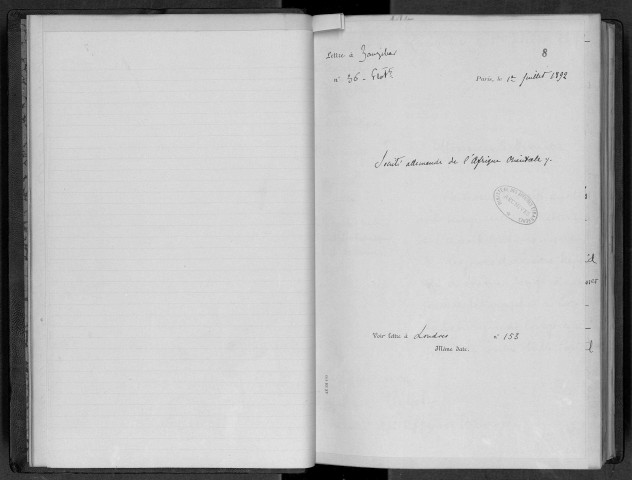 Lettre à Zanzibar
8
n° 36 -
Paris, le 1er juillet 1892
Société allemande de l'Afrique Orientale
Voir lettre à Londres n° 153
Même date.